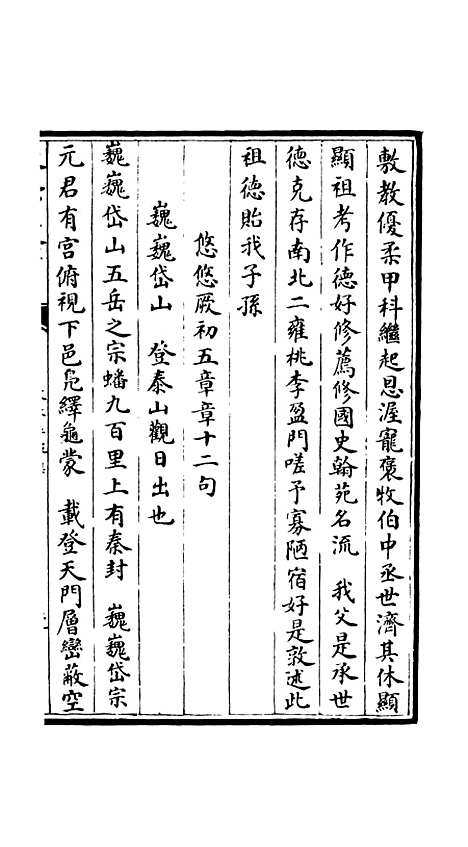 敷教優柔甲科繼起恩渥寵褒牧伯中丞世濟其休顯
顯祖考作德好修薦修國史翰苑名流　我父是承世
德克存南北二雍桃李盈門嗟予寡陋宿好是敦述此
祖德貽我子孫
悠悠厥初五章章十二句
巍巍岱山　登泰山觀日出也
巍巍岱山五岳之宗蟠九百里上有秦封　巍巍岱宗
元君有宮俯視下邑鳧繹龜蒙　載登天門層巒蔽空